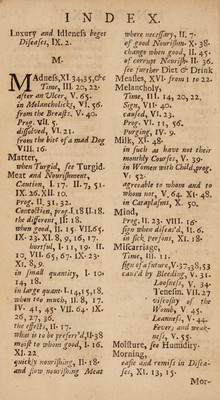 INDEX.
Luxury and Idleness beget
Diseases, IX. 2.
M.
Madness, XI. 34, 35, &c
Time, III. 20, 22.
after an Ulcer, V. 65.
in Melancholicks, VI. 56.
from the Breasts, V. 40.
Prog. VII. 5.
dissolved, VI. 21.
from the biet of a mad Dog
VIII. 16.
Matter,
when Turgid, see Turgid.
Meat and Nourishment,
Caution, I. 17. II. 7, 51.
IX. 26. XII. 10.
Prog. II. 31. 32.
Concoction, prog. I. 18 II. 18.
the different, III. 18.
when good, II. 15. VII. 65.
IX. 23. XI. 8, 9, 16, 17.
hurtful, I. 11, 19. II.
10, VII. 65, 67. IX. 23.
XI. 8, 9.
in small quantity, I. 10.
14, 18.
in large quant. I. 14, 15, 18.
when too much, II. 8, 17.
IV. 41, 45. VII. 64. IX.
26, 27, 36.
the effects, II. 17.
what is to be prefer'd, II. 38
moist to whom good, I. 16.
XI. 22.
quickly nourishing, II. 18.
and slow nourishing Meat
where necessary, II. 7.
of good Nourishm. X. 38.
change when good, II. 45.
of corrupt Nourish. II. 36.
see further Diet & Drink
Measles, XVI. from 1 to 22.
Melancholy,
Time, III. 14, 20, 22.
Sign, VII. 40.
caused, VI. 23.
Prog. VI. 11, 56.
Purging, IV. 9.
Milk, XI. 48.
in such as have not their
monthly Courses, V. 39.
in Women with Child, prog.
V. 52.
agreeable to whom and to
whom not, V. 64. XI. 48.
in Cataplasms, X. 50.
Mind,
Prog. II. 23. VIII. 16.
sign when diseas'd, II. 6.
in sick persons, XI. 18.
Miscarriage,
Time, III. 11.
sign of a future, V. 37, 38, 53
caus'd by Bleeding, V. 31.
Loosness, V. 34.
Tenesm. VII. 27
viscosity of the
Womb, V. 45.
Leanness, V. 44.
Fever, and weak-
ness, V. 55.
Moisture, see Humidity.
Morning,
ease and remiss in Disea-
ses, XI. 13, 15.
Mor-